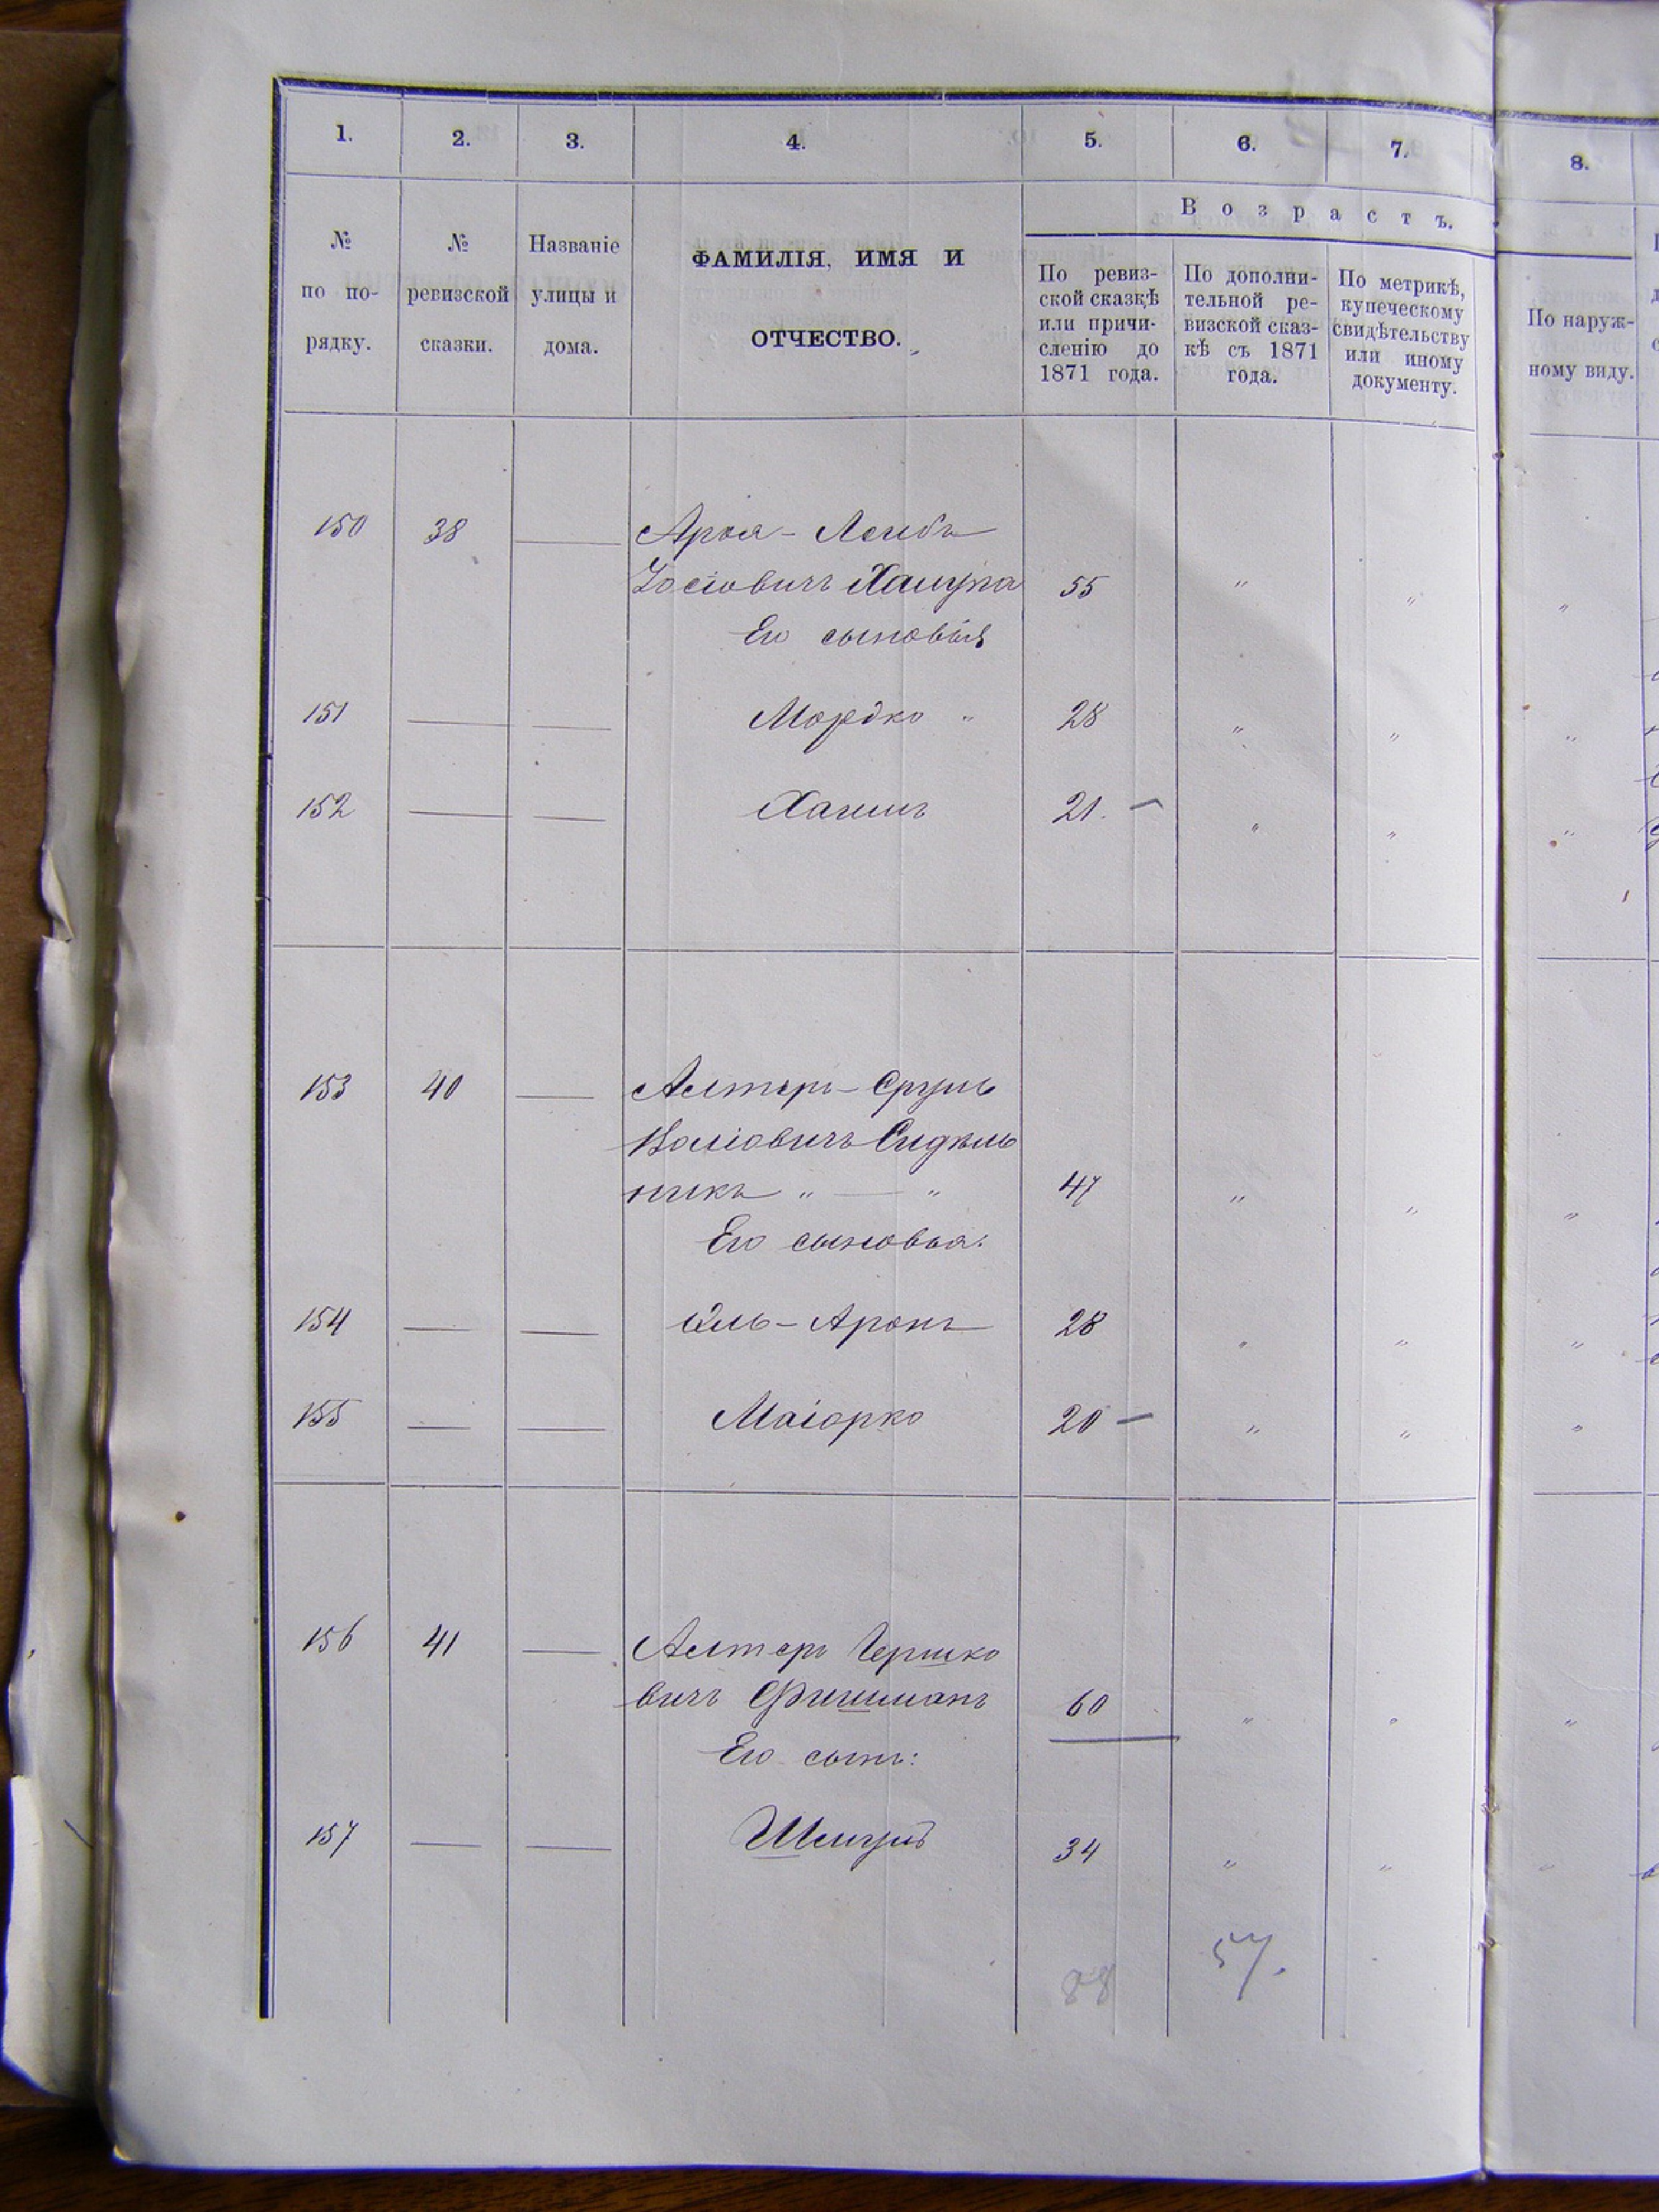 1. 2. 3. 4. 5. 6. 7. 8.
Возрастъ.
№ по по-рядку.
№ ревизской сказки.
Названіе улицы и дома.
ФАМИЛІЯ, ИМЯ И
ОТЧЕСТВО.
По ревиз-
ской сказкѣ
или причи-
сленію до
1871 года.
По дополни-
тельной ре-
визской сказ-
кѣ съ 1871
года.
По метрикѣ,
купеческому
свидѣтельству
или иному
документу.
По наруж-
ному виду.
150 38 —
Іосіовичъ 55 " " "
Его сыновья
151 — — Мордко " 28 " " "
152 — — Хаимъ 21. — " " "
153 40 — Алтеръ-Сруль
Сидель
никъ " — " 47 " " "
Его сыновья:
154 — — Аронъ 28 " " "
155 — — Маіорко 20 — " " "
156 41 — Алтеръ Гершко
вичъ Фишманъ 60 " " "
Его сынъ:
157 — — Шмуль 34 " " "
88 57.